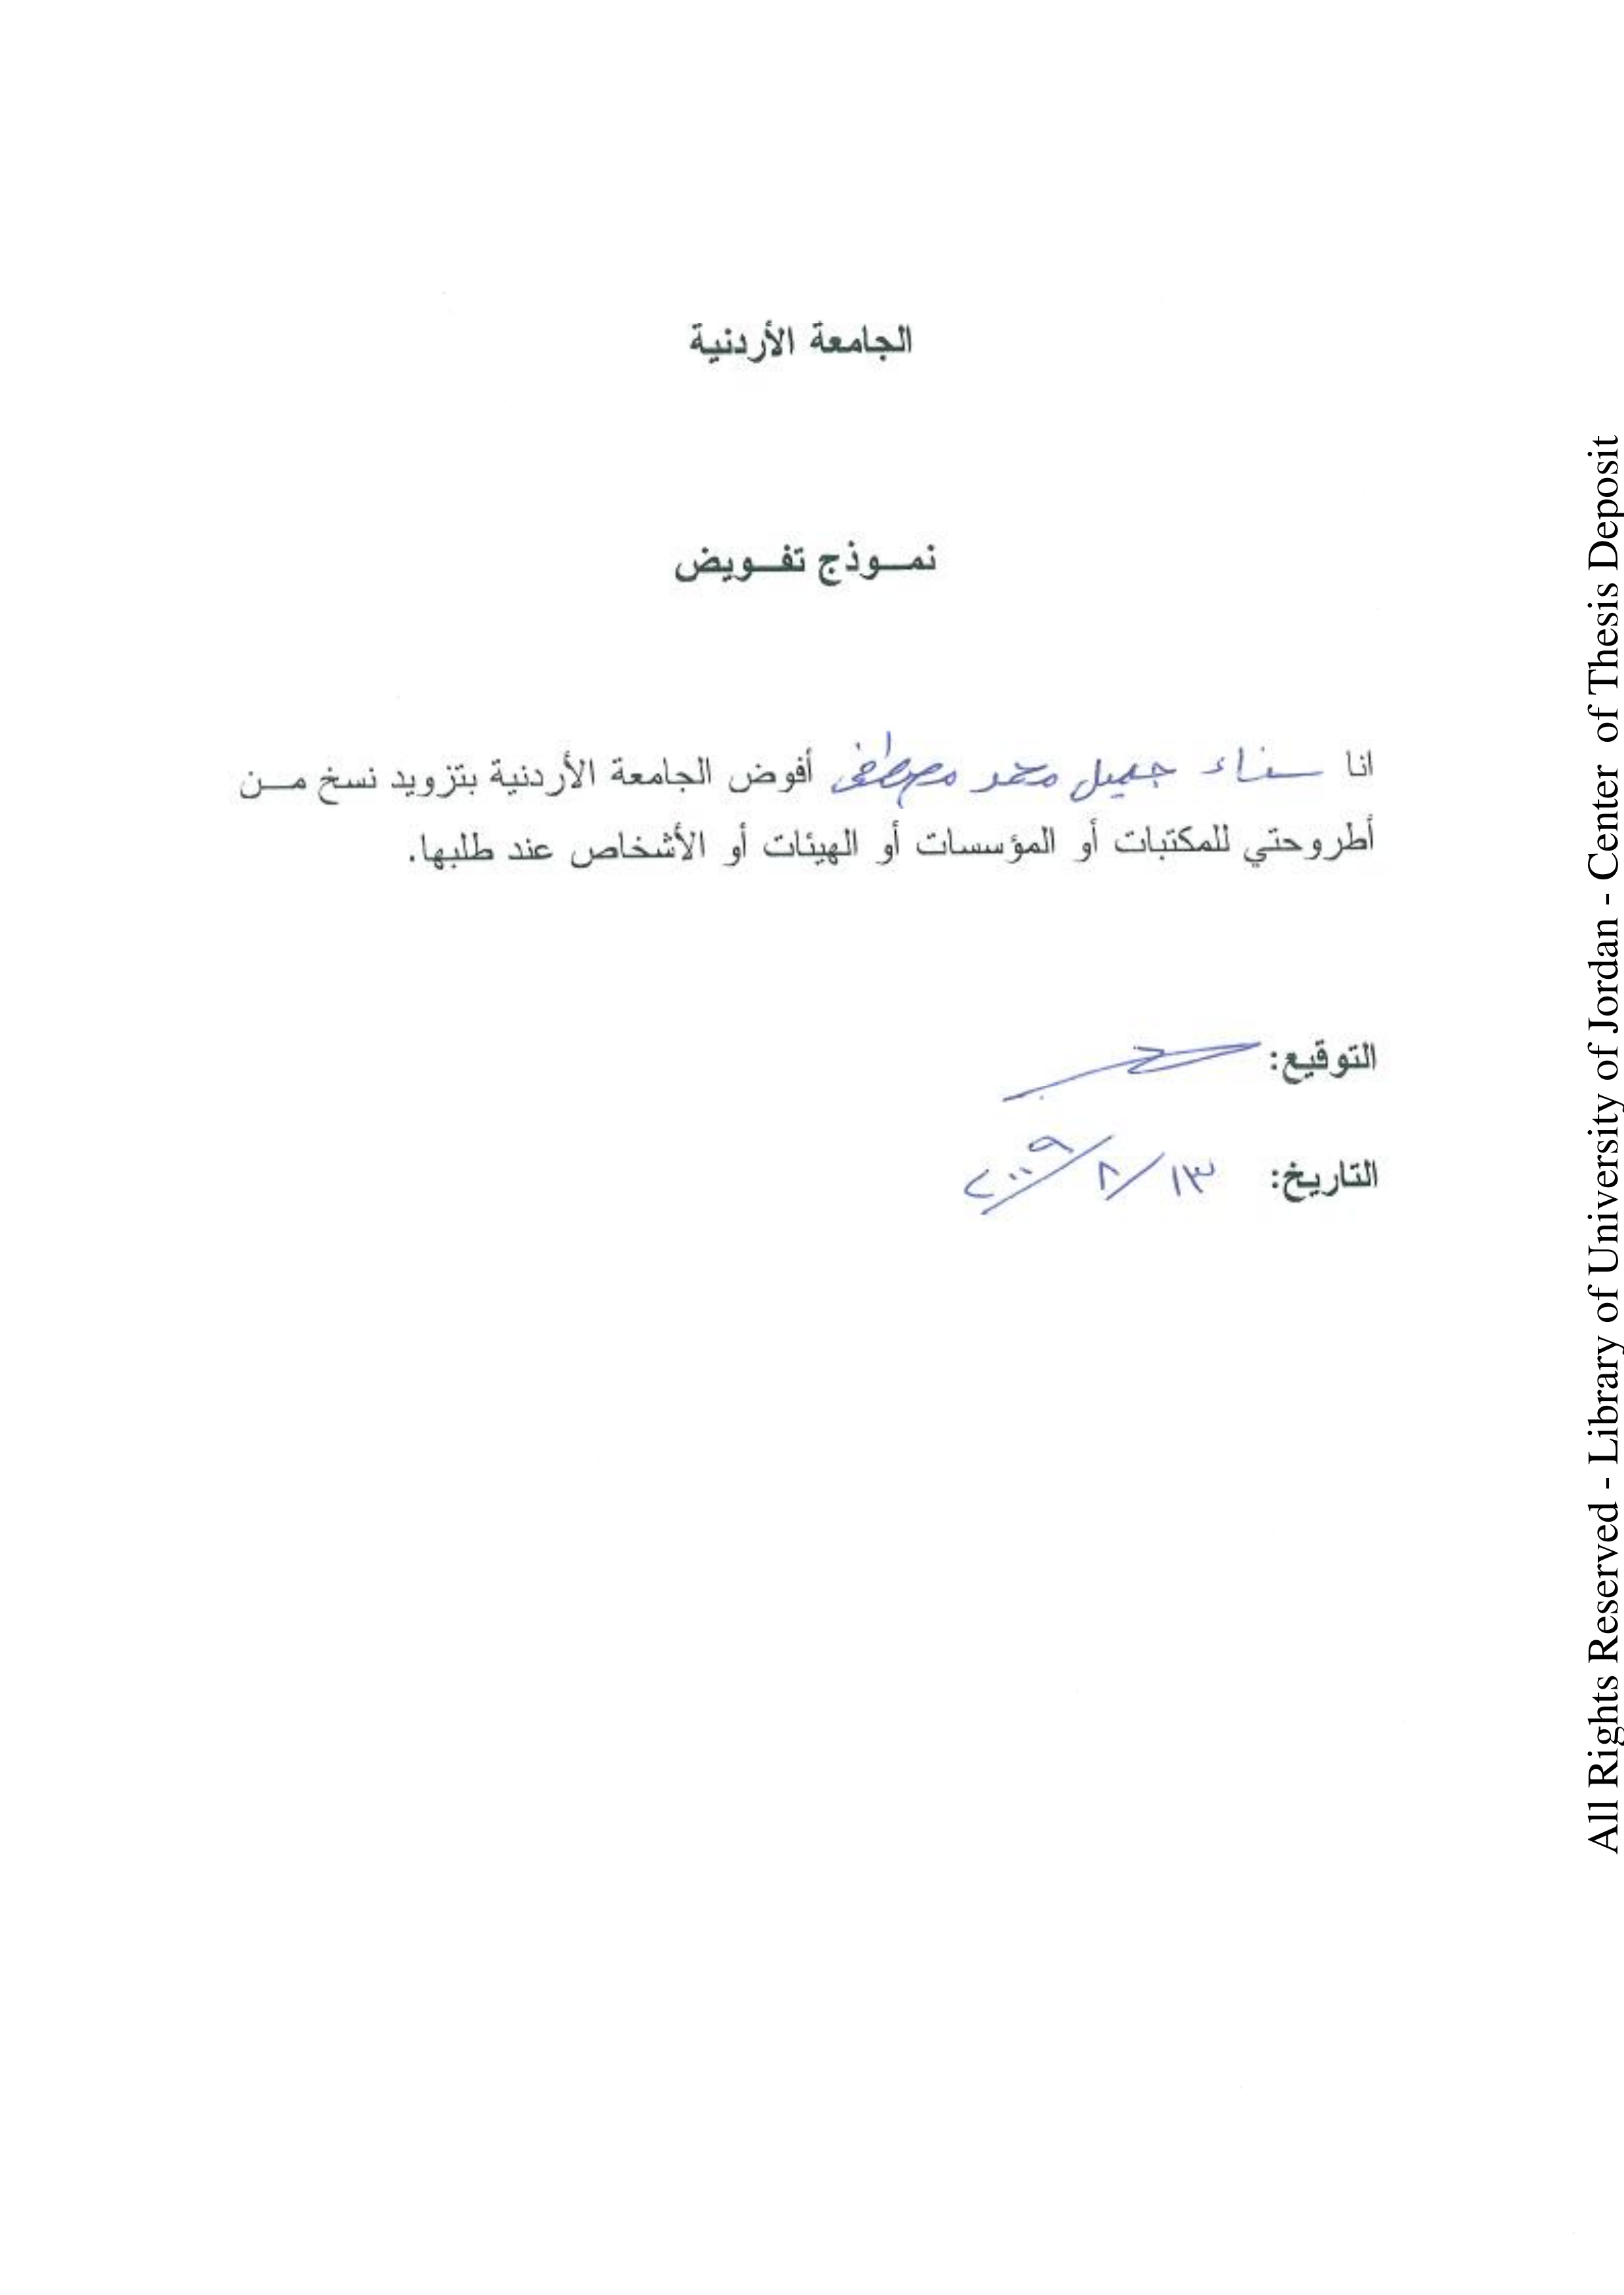 الجامعة الأردنية
نمـوذج تفـويض
انا سناء جميل محمد مصطفى أفوض الجامعة الأردنية بتزويد نسخ مـن
أطروحتي للمكتبات أو المؤسسات أو الهيئات أو الأشخاص عند طلبها.
التوقيع:
التاريخ: ١٣/ ٨/ ٢٠٠٩
All Rights Reserved - Library of University of Jordan - Center of Thesis Deposit